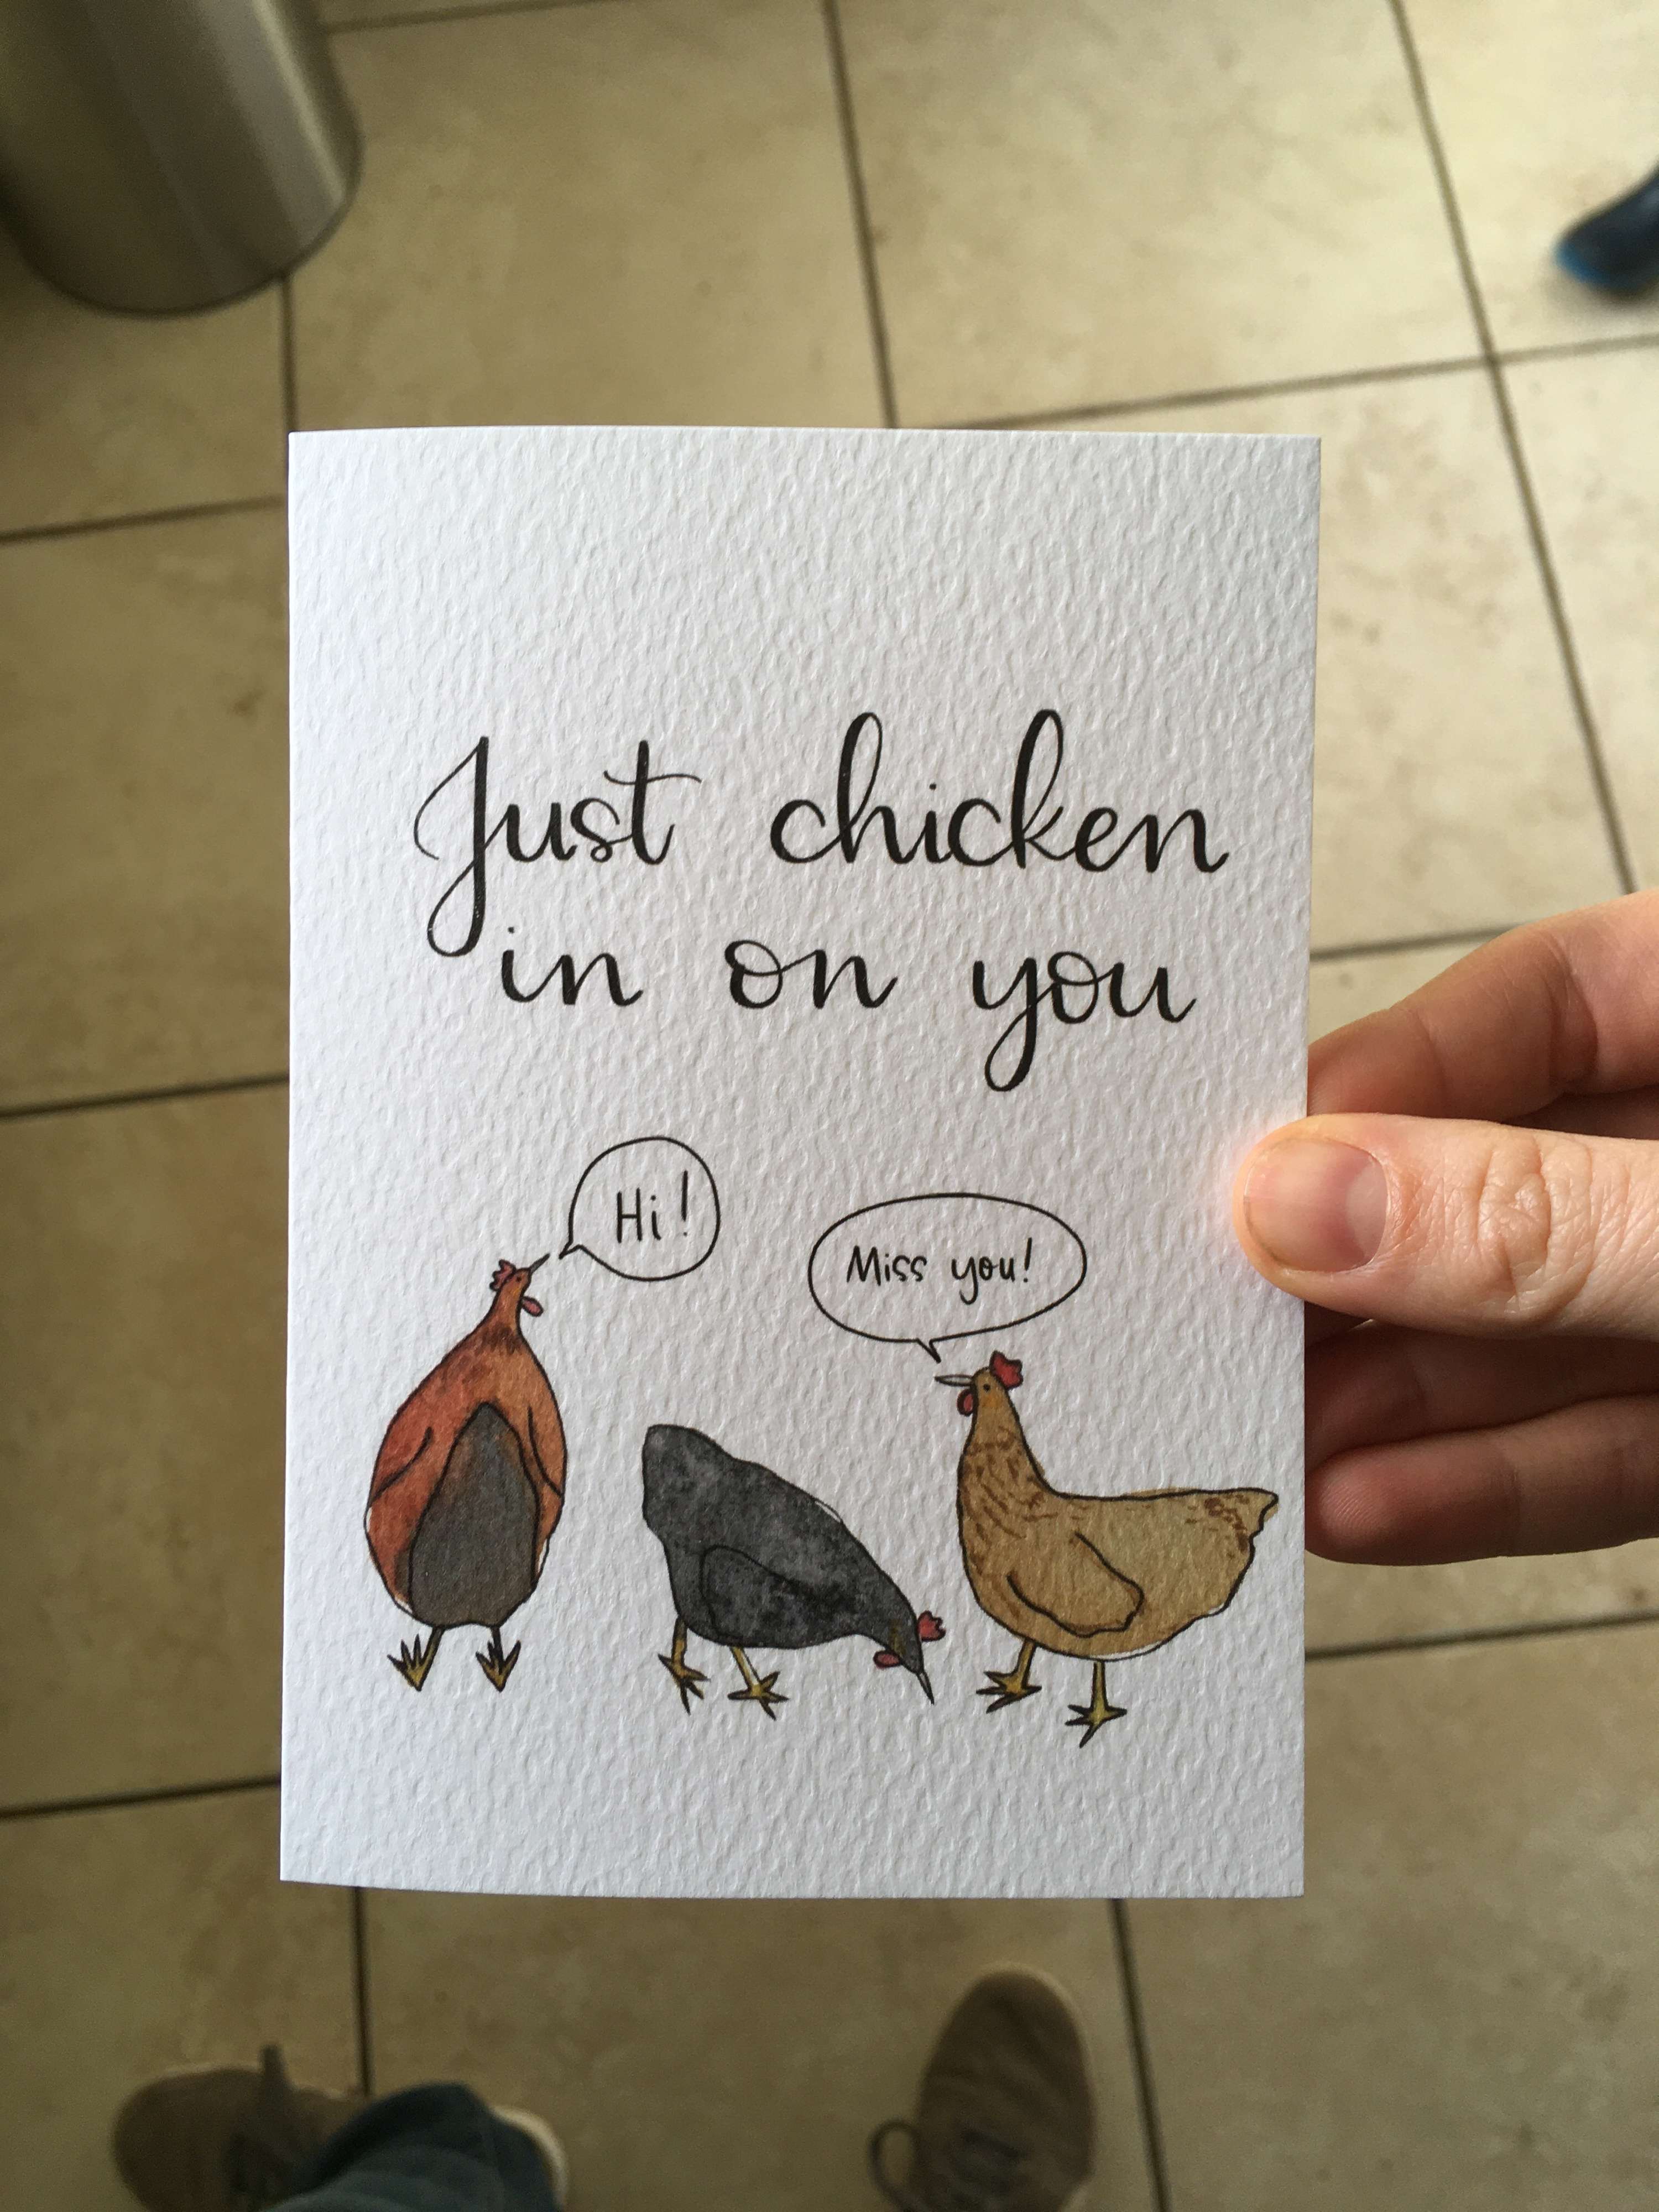 Just chicken
in on you
Hi!
Miss you!